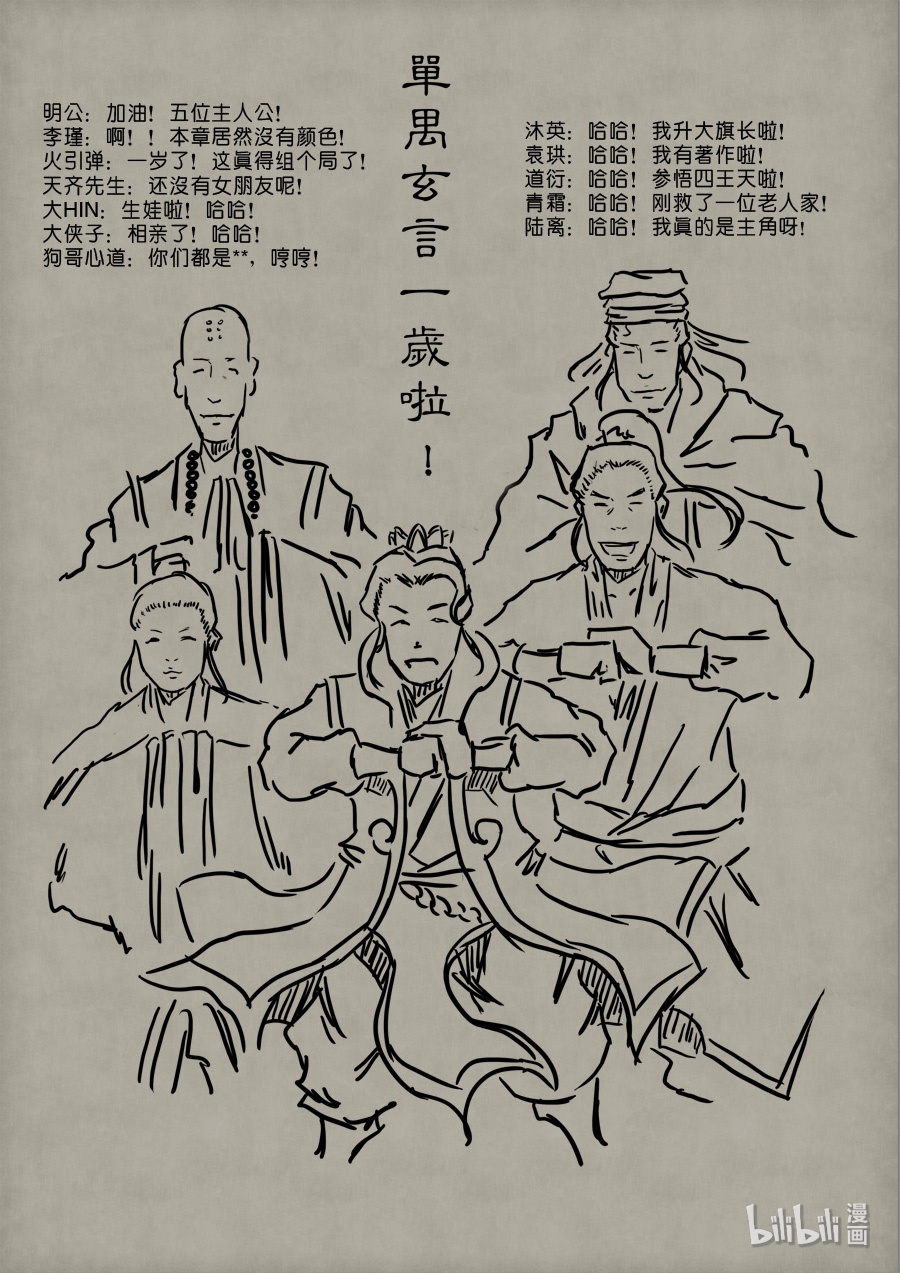 單禺玄言一歲啦！
明公：加油！五位主人公！
李瑾：啊！！本章居然沒有颜色！
火引弹：一岁了！这眞得组个局了！
天齐先生：还沒有女朋友呢！
大HIN：生娃啦！哈哈！
大侠子：相亲了！哈哈！
狗哥心道：你们都是**，哼哼！
沐英：哈哈！我升大旗长啦！
袁珙：哈哈！我有著作啦！
道衍：哈哈！参悟四王天啦！
青霜：哈哈！刚救了一位老人家！
陆离：哈哈！我眞的是主角呀！
bilibili 漫画